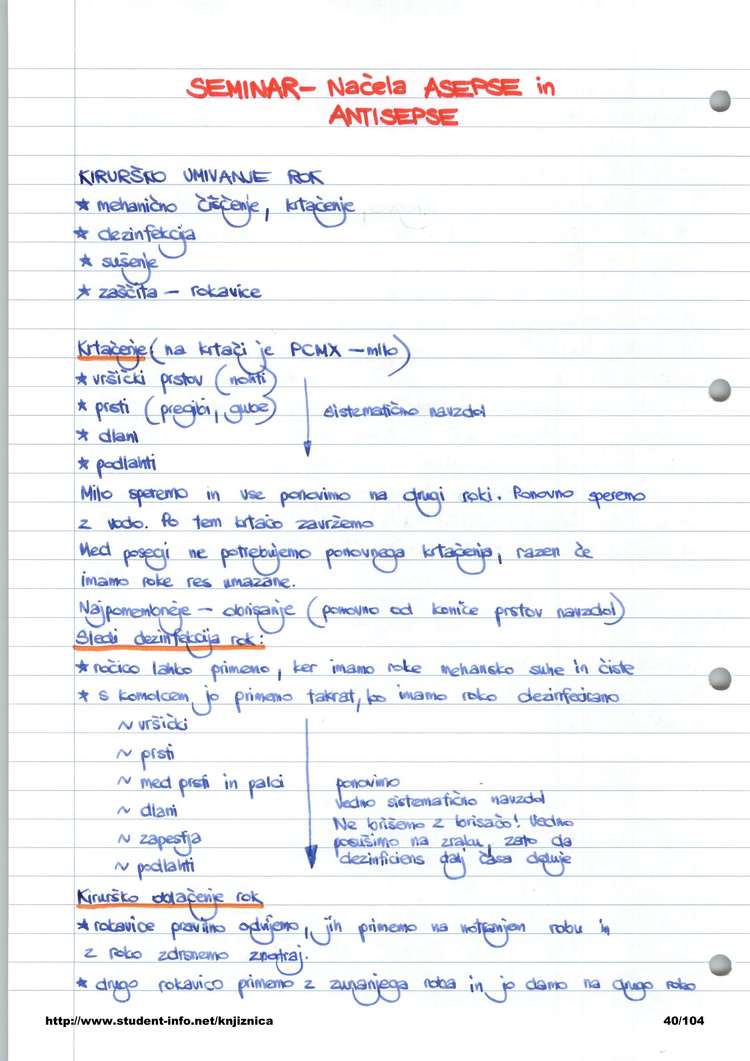 SEMINAR - Načela ASEPSE in
ANTISEPSE
KIRURŠKO UMIVANJE ROK
* mehanično čiščenje, krtačenje
* dezinfekcija
* sušenje
* zaščita - rokavice
Krtačenje (na krtači je PCMX - milo)
* vršički prstov (nohti)
* prsti (pregibi, gube)
sistematično navzdol
* dlani
* podlahti
Milo speremo in vse ponovimo na drugi roki. Ponovno speremo
z vodo. Po tem krtačo zavržemo
Med posegi ne potrebujemo ponovnega krtačenja, razen če
imamo roke res umazane.
Najpomembneje - obrisanje (ponovno od konice prstov navzdol)
Sledi dezinfekcija rok:
* ročico lahko primemo, ker imamo roke mehansko suhe in čiste
* s komolcem jo primemo takrat, ko imamo roko dezinfecirano
~ vršički
~ prsti
~ med prsti in palci
~ dlani
~ zapestja
~ podlahti
ponovimo
vedno sistematično navzdol
Ne brišemo z brisačo! Vedno
posušimo na zraku, zato da
dezinficiens dalj časa deluje
Kirurško oblačenje rok
* rokavice pravilno odvijemo, jih primemo na notranjem robu in
z roko zdrsnemo znotraj.
* drugo rokavico primemo z zunanjega roba in jo damo na drugo roko
http://www.student-info.net/knjiznica
40/104